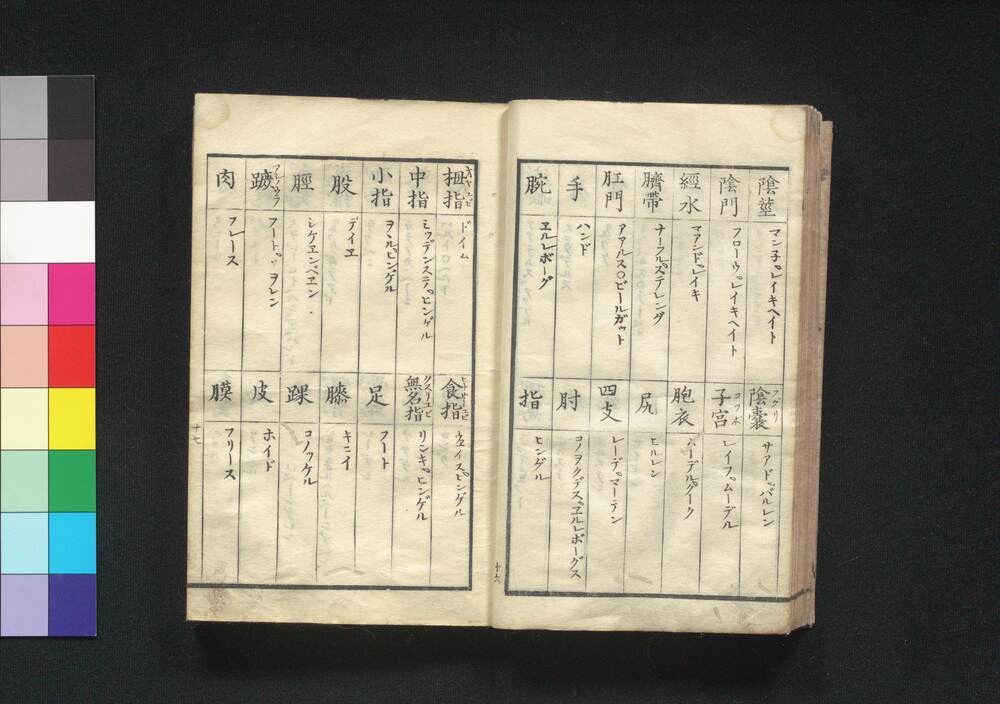 陰莖 マン子。レイキヘイト
陰門 フローウ。レイキヘイト
經水 マアンド。レイキ
臍帶 ナーフル。ステレンダ
肛門 アアルス○ビールガット
手 ハンド
腕 ヱルレボーグ
陰嚢 フグリ サアド。バルレン
子宮 コツボ レイフ。ムーデル
胞衣 ムーデル。クーク
尻 ヒルレン
四支 レーデ。マーテン
肘 コノヲクデス。ヱルレボーグス
指 ヒンゲル
十六
拇指 ドイム
中指 ミッデンステ。ヒンゲル
小指 ヲンル。ピンゲル
股 デイヱ
脛 シケヱンベヱン
蹠 フート。ツヲレン
肉 フレース
食指 ウェイス。ヒンゲル
無名指 クスリユビ リンキ。ヒンゲル
足 フート
膝 キニイ
踝 コノッケル
皮 ホイド
膜 フリース
十七